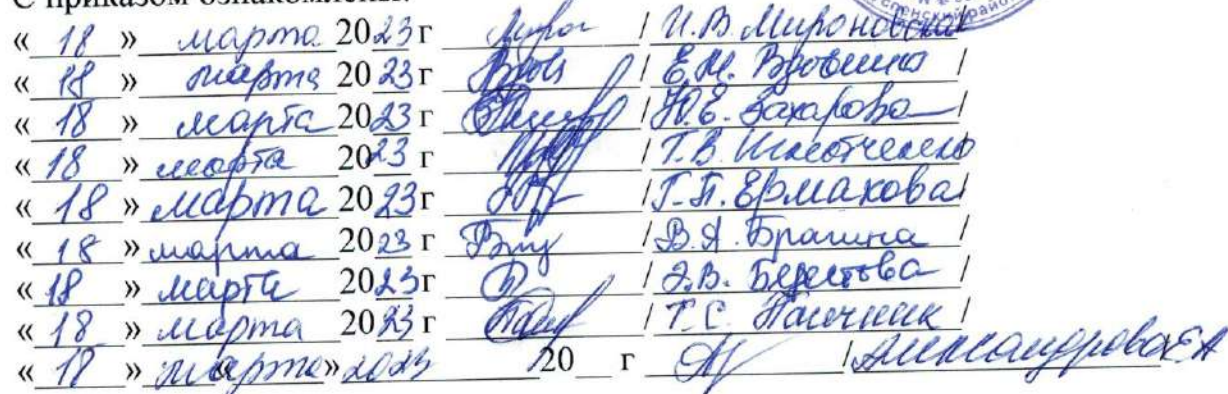 С приказом ознакомлены:
« 18 » марта 2023 г / И.В. Мироновская
« 18 » марта 2023 г / Е.М. Вдовина /
« 18 » марта 2023 г / Ю.Е. Захарова /
« 18 » марта 2023 г / Т.В.
« 18 » марта 2023 г / Г.П. Ермакова /
« 18 » марта 2023 г / В.Я. Брагина /
« 18 » марта 2023 г / Э.В. Берестова /
« 18 » марта 2023 г / Т.С. /
« 18 » марта» 2023 20 г / Александрова ЕА